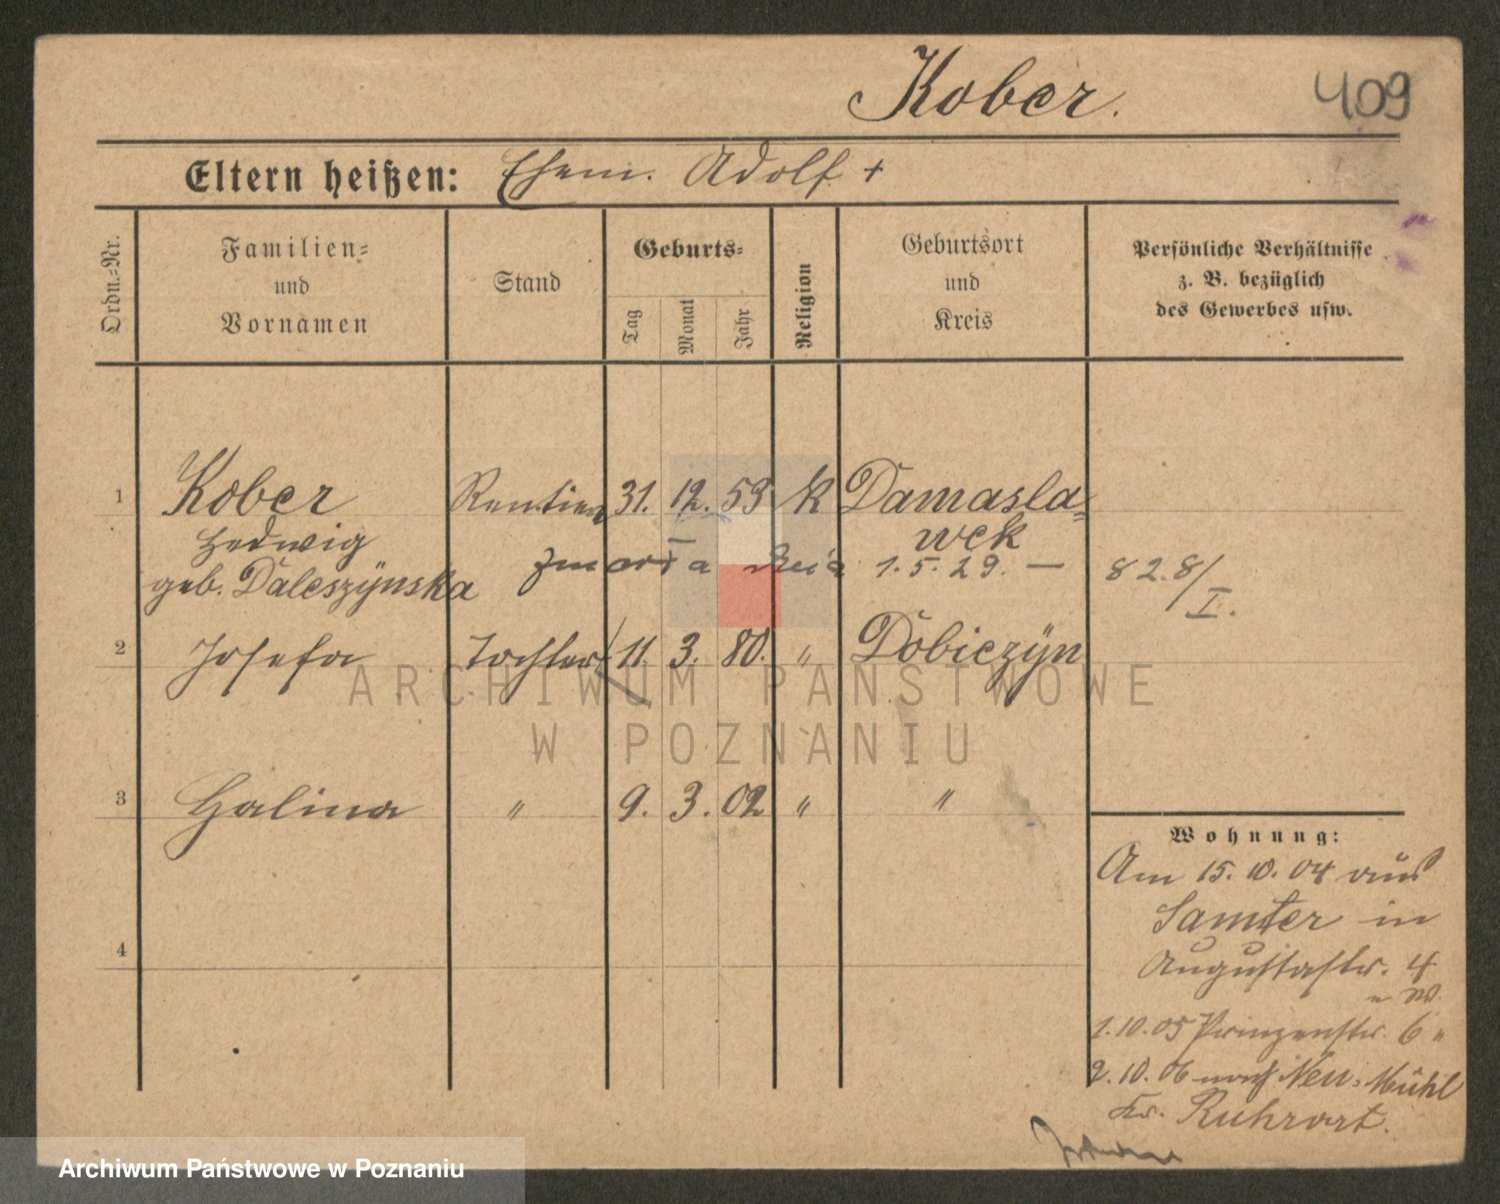 Kober.
409
Eltern heißen: Ehem. Adolf +
Ordn.-Nr.
Familien-
und
Vornamen
Stand
Geburts-
Tag
Monat
Jahr
Religion
Geburtsort
und
Kreis
Persönliche Verhältnisse
z. B. bezüglich
des Gewerbes usw.
1 Kober Rentiere 31. 12. 59 k Damasla-
Hedwig wek
geb. Daleszÿnska
zmarła dnia 1.5.29. — 82.8/I.
2 Josefa Tochter 11. 3. 80. " Dobiczÿn
3 Halina " 9. 3. 02 " "
4
Wohnung:
Am 15.10.04 aus
Samter in
Augustastr. 4
n W.
1.10.05 Prinzenstr. 6 "
2.10.06 nach Neu-Mühl
Kr. Ruhrort.
ARCHIWUM PAŃSTWOWE
W POZNANIU
Archiwum Państwowe w Poznaniu